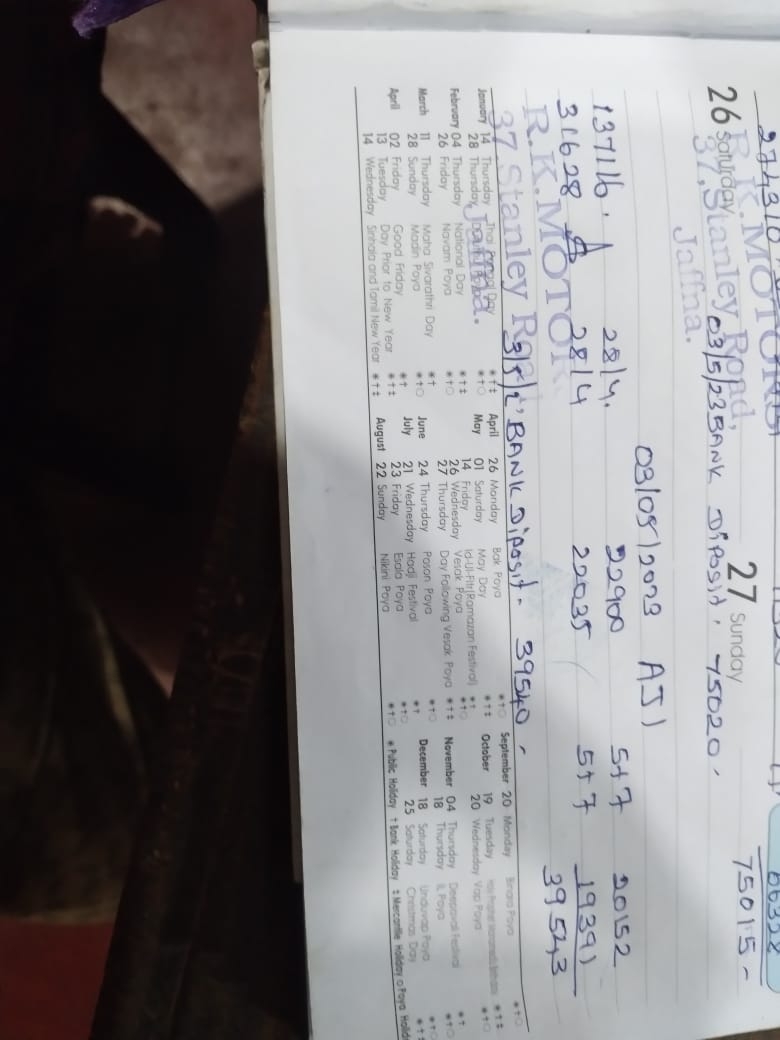 274310
06328
R.K.MOTORS
75015-
26 Saturday
27 Sunday
37, Stanley Road,
03/5/23 BANK Diposit, 75020,
Jaffna.
03/05/2023 AJ1
137116. A 28/4. 22900 5+7 20152
31628 A 28/4 22035 5+7 19391
39543
R.K.MOTOR
37 Stanley R
BANK Diposit- 39540,
January 14 Thursday Thai Pongal Day *†‡
28 Thursday *†○
February 04 Thursday National Day *†‡
26 Friday Navam Poya *†○
March 11 Thursday Maha Sivarathri Day *†
28 Sunday Madin Poya *†○
April 02 Friday Good Friday *†
13 Tuesday Day Prior to New Year *†‡
14 Wednesday Sinhala and Tamil New Year *†‡
April 26 Monday Bak Poya *†○
May 01 Saturday May Day *†‡
14 Friday Id-Ul-Fitr(Ramazan Festival) *†
26 Wednesday Vesak Poya *†○
27 Thursday Day Following Vesak Poya *†‡
June 24 Thursday Poson Poya *†○
July 21 Wednesday Hadji Festival *†
23 Friday Esala Poya *†○
August 22 Sunday Nikini Poya *†○
September 20 Monday Binara Poya *†○
October 19 Tuesday *†‡
20 Wednesday Vap Poya *†○
November 04 Thursday Deepavali Festival *†
18 Thursday IL Poya *†○
December 18 Saturday Unduvap Poya *†○
25 Saturday Christmas Day *†‡
* Public Holiday † Bank Holiday ‡ Mercantile Holiday ○ Poya Holid